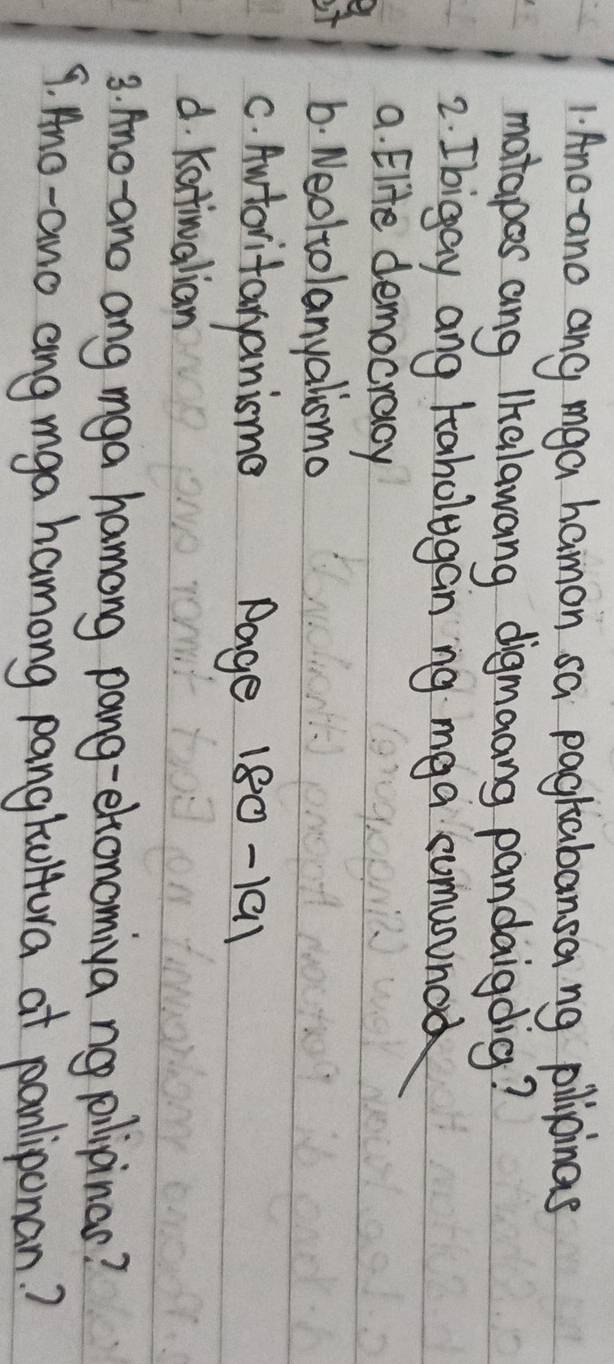 1. Ano-ano ang mga hamon sa pagkabansa ng pilipinas
matapos ang Ikalawang digmaang pandaigdig?
2. Ibigay ang kahulugan ng mga sumusunod
a. Elite democracy
b. Neokolanyalismo
c. Awtoritaryanismo Page 180-191
d. Katiwalian
3. Ano-ano ang mga hamong pang-ekonomiya ng pilipinas?
9. Ano-ano ang mga hamong pangkultura at panlipunan?